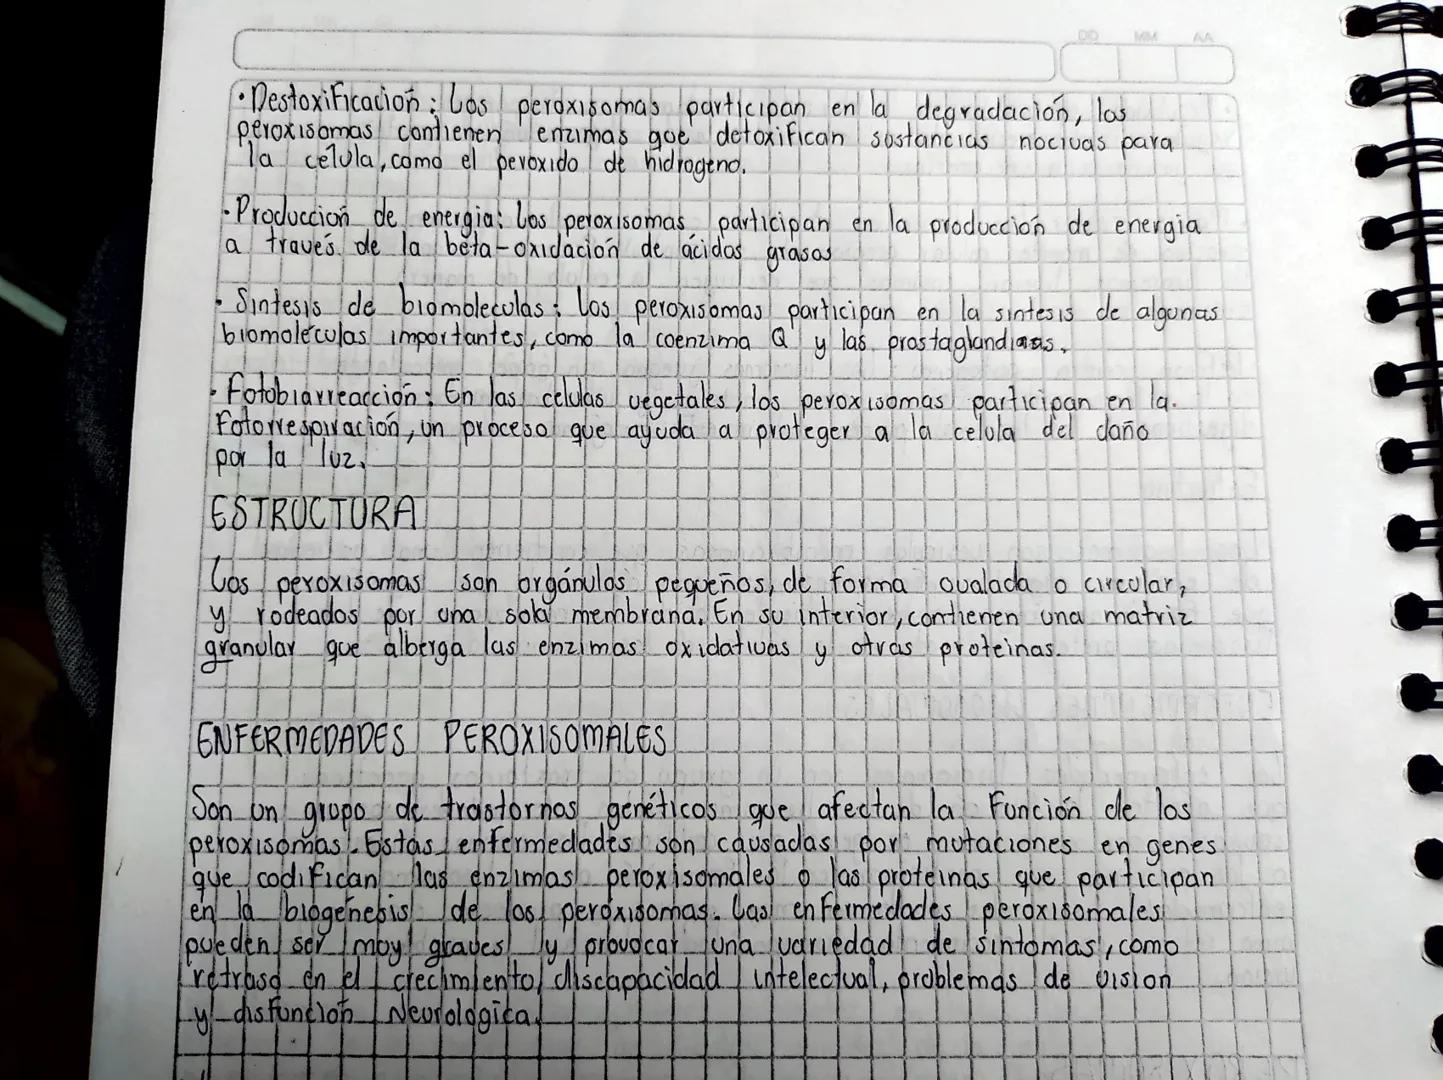 DD MM AA
• Destoxificación: Los peroxisomas participan en la degradación, los
peroxisomas contienen enzimas que detoxifican sustancias nocivas para
la celula, como el peroxido de hidrogeno.
• Producción de energia: Los peroxisomas participan en la producción de energia
a través de la beta-oxidación de ácidos grasos
• Sintesis de biomoleculas: Los peroxisomas participan en la sintesis de algunas
biomoleculas importantes, como la coenzima Q y las prostaglandinas.
• Fotobiarreacción: En las celulas vegetales, los peroxisomas participan en la
Fotorrespiración, un proceso que ayuda a proteger a la celula del daño
por la luz.
ESTRUCTURA
Los peroxisomas son orgánulos pequeños, de forma ovalada o circular,
y rodeados por una sola membrana. En su interior, contienen una matriz
granular que alberga las enzimas oxidativas y otras proteinas.
ENFERMEDADES PEROXISOMALES
Son un grupo de trastornos genéticos que afectan la Función de los
peroxisomas. Estas enfermedades son causadas por mutaciones en genes
que codifican las enzimas peroxisomales o las proteinas que participan
en la biogenesis de los peroxisomas. Las enfermedades peroxisomales
pueden ser muy graves y provocar una variedad de sintomas, como
retraso en el crecimiento, discapacidad intelectual, problemas de vision
y disfunción Neurologica.